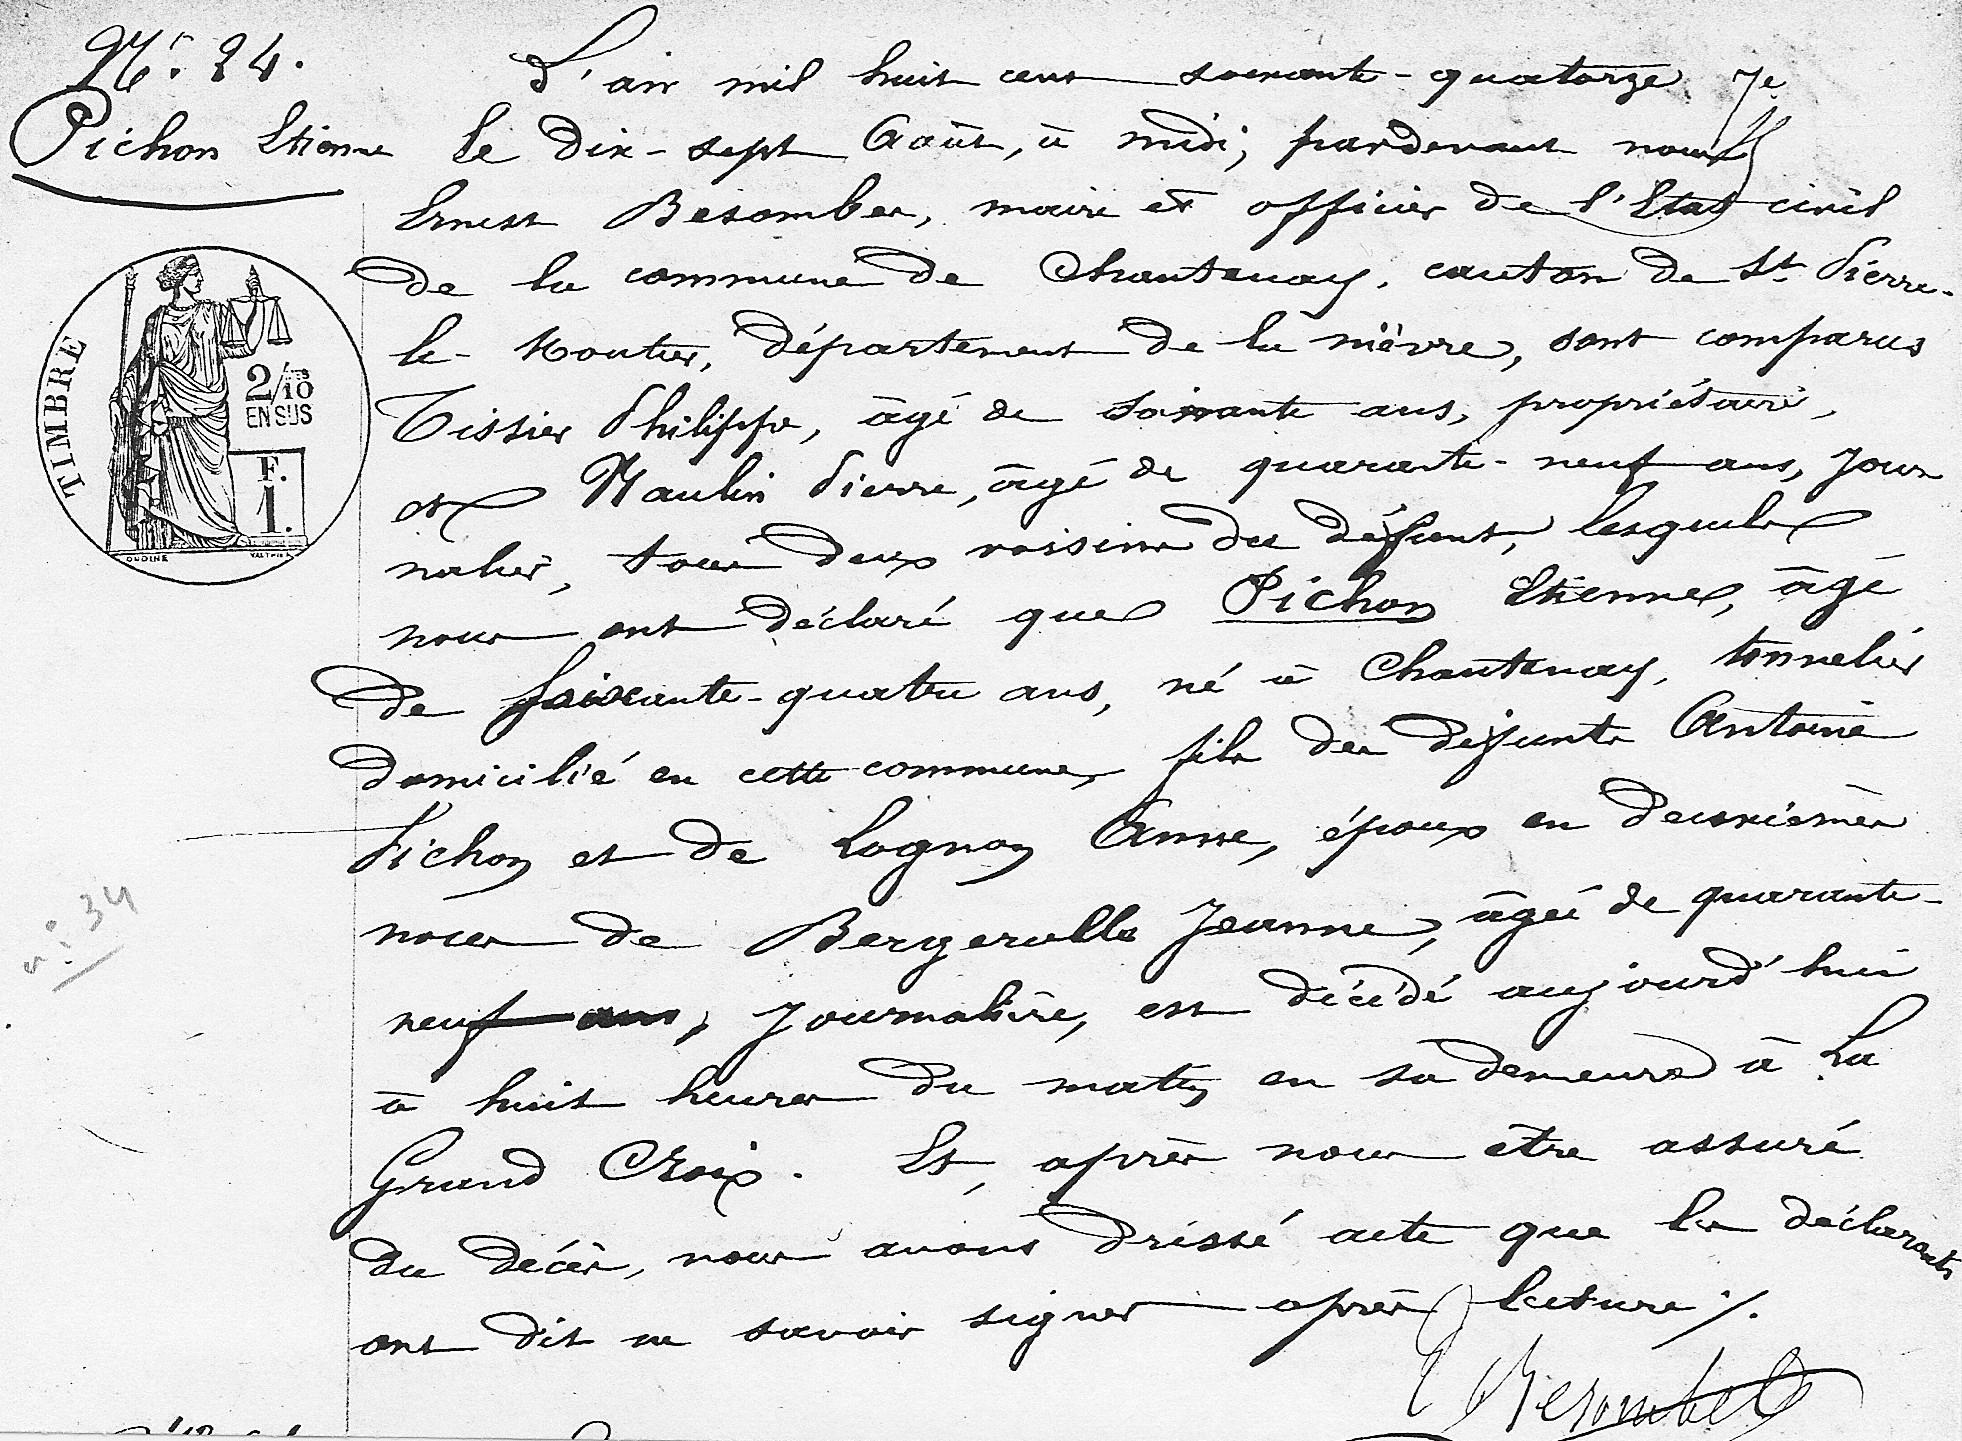 N° 24.
Pichon Etienne
L'an mil huit cent soixante-quatorze 7e
le dix-sept Août, à midi, pardevant nous
Ernest Besombes, maire et officier de l'Etat civil
de la commune de Chantenay, canton de St Pierre-
le-Moutier, département de la nièvre, sont comparus
Tissier Philippe, âgé de soixante ans, propriétaire,
et Naulin Pierre, âgé de quarante-neuf ans, jour
nalier, tous deux voisins du défunt, lesquels
nous ont déclaré que Pichon Etienne, âgé
de soixante-quatre ans, né à Chantenay, tonnelier
domicilié en cette commune, fils des défunts Antoine
Pichon et de Lognon Anne, époux en deuxièmes
noces de Bergerolle Jeanne, âgée de quarante-
neuf ans, journalière, est décédé aujourd'hui
à huit heures du matin en sa demeure à La
Grand Croix. Et, après nous être assuré
du décès, nous avons dressé acte que les déclarants
ont dit ne savoir signer après lecture ./.
E Besombes
TIMBRE
2/10
EN SUS
F.
1.
OUDINÉ
n° 34